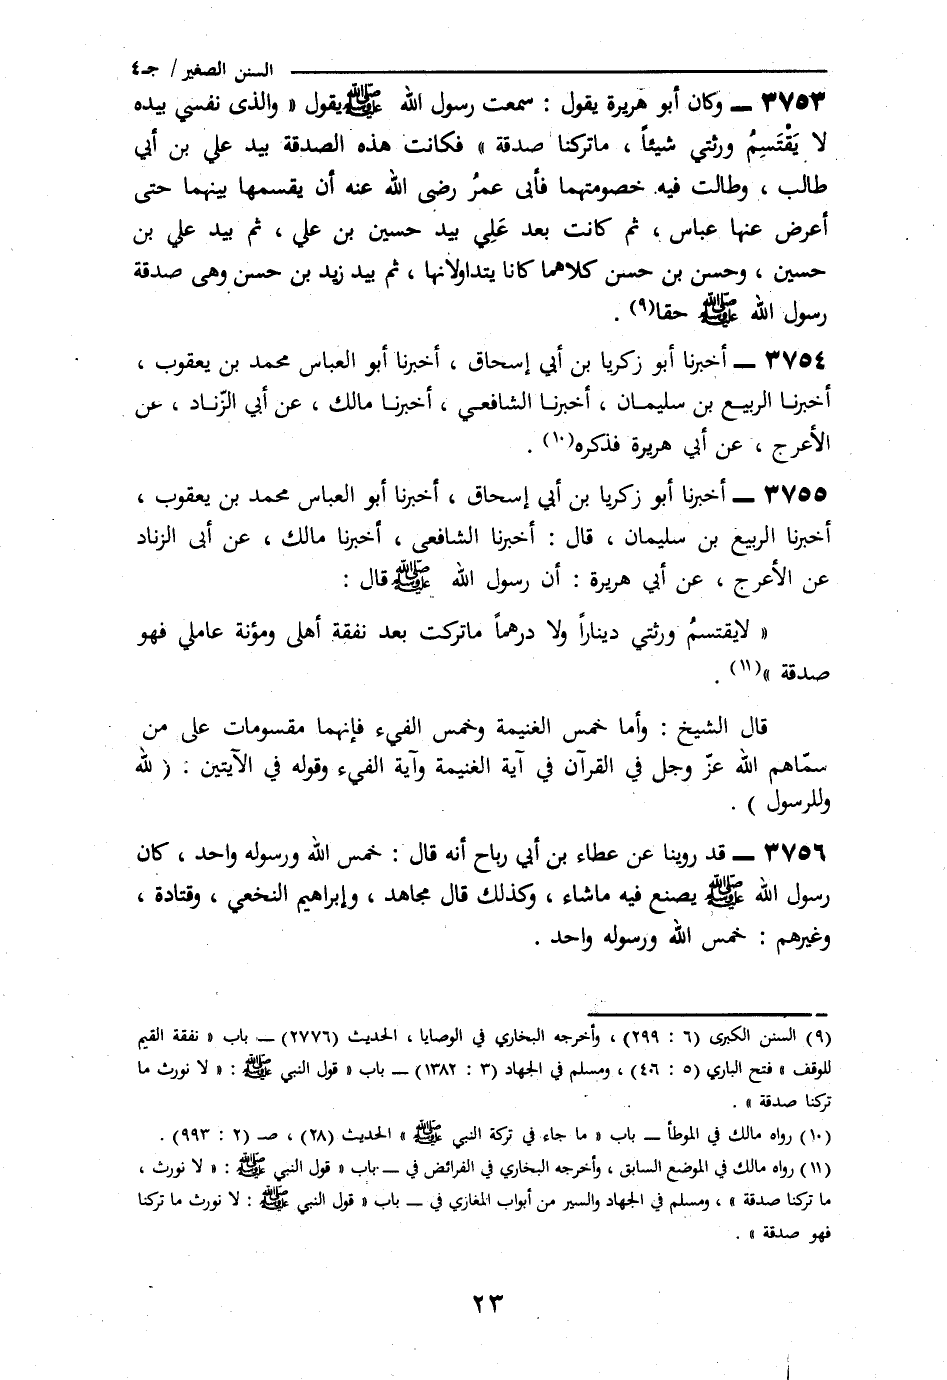 السنن الصغير / جـ٤
٣٧٥٣ ــ وكان أبو هريرة يقول : سمعت رسول الله ﷺ يقول « والذى نفسي بيده
لا يَقْتَسِمُ ورثتي شيئاً ، ماتركنا صدقة » فكانت هذه الصدقة بيد علي بن أبي
طالب ، وطالت فيه خصومتهما فأبى عمرُ رضى الله عنه أن يقسمها بينهما حتى
أعرض عنها عباس ، ثم كانت بعد عَلِي بيد حسين بن علي ، ثم بيد علي بن
حسين ، وحسن بن حسن كلاهما كانا يتداولانها ، ثم بيد زيد بن حسن وهى صدقة
رسول الله ﷺ حقا(٩) .
٣٧٥٤ ــ أخبرنا أبو زكريا بن أبي إسحاق ، أخبرنا أبو العباس محمد بن يعقوب ،
أخبرنـا الربيـع بن سليمـان ، أخبرنـا الشافعـي ، أخبرنـا مالك ، عن أبي الزّنـاد ، عن
الأعرج ، عن أبي هريرة فذكره(١٠) .
٣٧٥٥ ــ أخبرنا أبو زكريا بن أبي إسحاق ، أخبرنا أبو العباس محمد بن يعقوب ،
أخبرنا الربيع بن سليمان ، قال : أخبرنا الشافعى ، أخبرنا مالك ، عن أبى الزناد
عن الأعرج ، عن أبي هريرة : أن رسول الله ﷺ قال :
« لايقتسمُ ورثتي ديناراً ولا درهماً ماتركت بعد نفقة أهلى ومؤنة عاملي فهو
صدقة »(١١) .
قال الشيخ : وأما خمس الغنيمة وخمس الفيء فإنهما مقسومات على من
سمّاهم الله عزّ وجل في القرآن في آية الغنيمة وآية الفيء وقوله في الآيتين : ( لله
وللرسول ) .
٣٧٥٦ ــ قد روينا عن عطاء بن أبي رباح أنه قال : خمس الله ورسوله واحد ، كان
رسول الله ﷺ يصنع فيه ماشاء ، وكذلك قال مجاهد ، وإبراهيم النخعي ، وقتادة ،
وغيرهم : خمس الله ورسوله واحد .
(٩) السنن الكبرى (٦ : ٢٩٩) ، وأخرجه البخاري في الوصايا ، الحديث (٢٧٧٦) ــ باب « نفقة القيم
للوقف » فتح الباري (٥ : ٤٠٦) ، ومسلم في الجهاد (٣ : ١٣٨٢) ــ باب « قول النبي ﷺ : « لا نورث ما
تركنا صدقة » .
(١٠) رواه مالك في الموطأ ــ باب « ما جاء في تركة النبي ﷺ » الحديث (٢٨) ، صـ (٢ : ٩٩٣) .
(١١) رواه مالك في الموضع السابق ، وأخرجه البخاري في الفرائض في ــ باب « قول النبي ﷺ : « لا نورث ،
ما تركنا صدقة » ، ومسلم في الجهاد والسير من أبواب المغازي في ــ باب « قول النبي ﷺ : لا نورث ما تركنا
فهو صدقة » .
٢٣